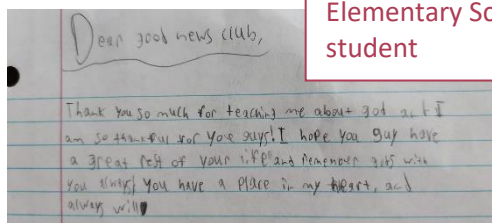 Elementary Sc
student
Dear good news club,
Thank you so much for teaching me about god and I
am so thankful for you guys! I hope you guy have
a great rest of your life and remember gods with
you always! You have a place in my heart, and
always will